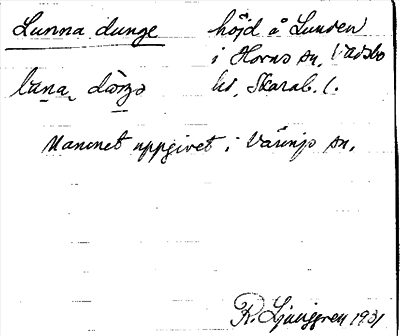 Lunna dunge höjd å Lunden
i Horns sn, Vadsbo
luna, hd, Skarab. l.
Namnet uppgivet i Väringo sn.
R. Ljunggren 1931